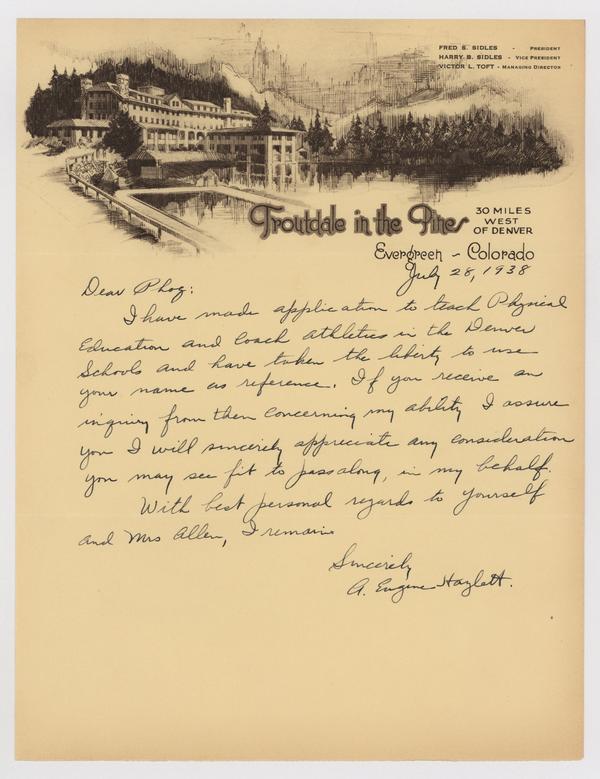 FRED S. SIDLES - PRESIDENT
HARRY B. SIDLES - VICE PRESIDENT
VICTOR L. TOFT - MANAGING DIRECTOR
Troutdale in the Pines
30 MILES
WEST
OF DENVER
Evergreen - Colorado
July 28, 1938
Dear Phog:
I have made application to teach Physical
Education and Coach Athletics in the Denver
Schools and have taken the liberty to use
your name as reference. If you receive an
inquiry from them concerning my ability I assure
you I will sincerely appreciate any consideration
you may see fit to pass along, in my behalf.
With best personal regards to yourself
and Mrs Allen, I remain
Sincerely,
A. Eugene Hazlett.